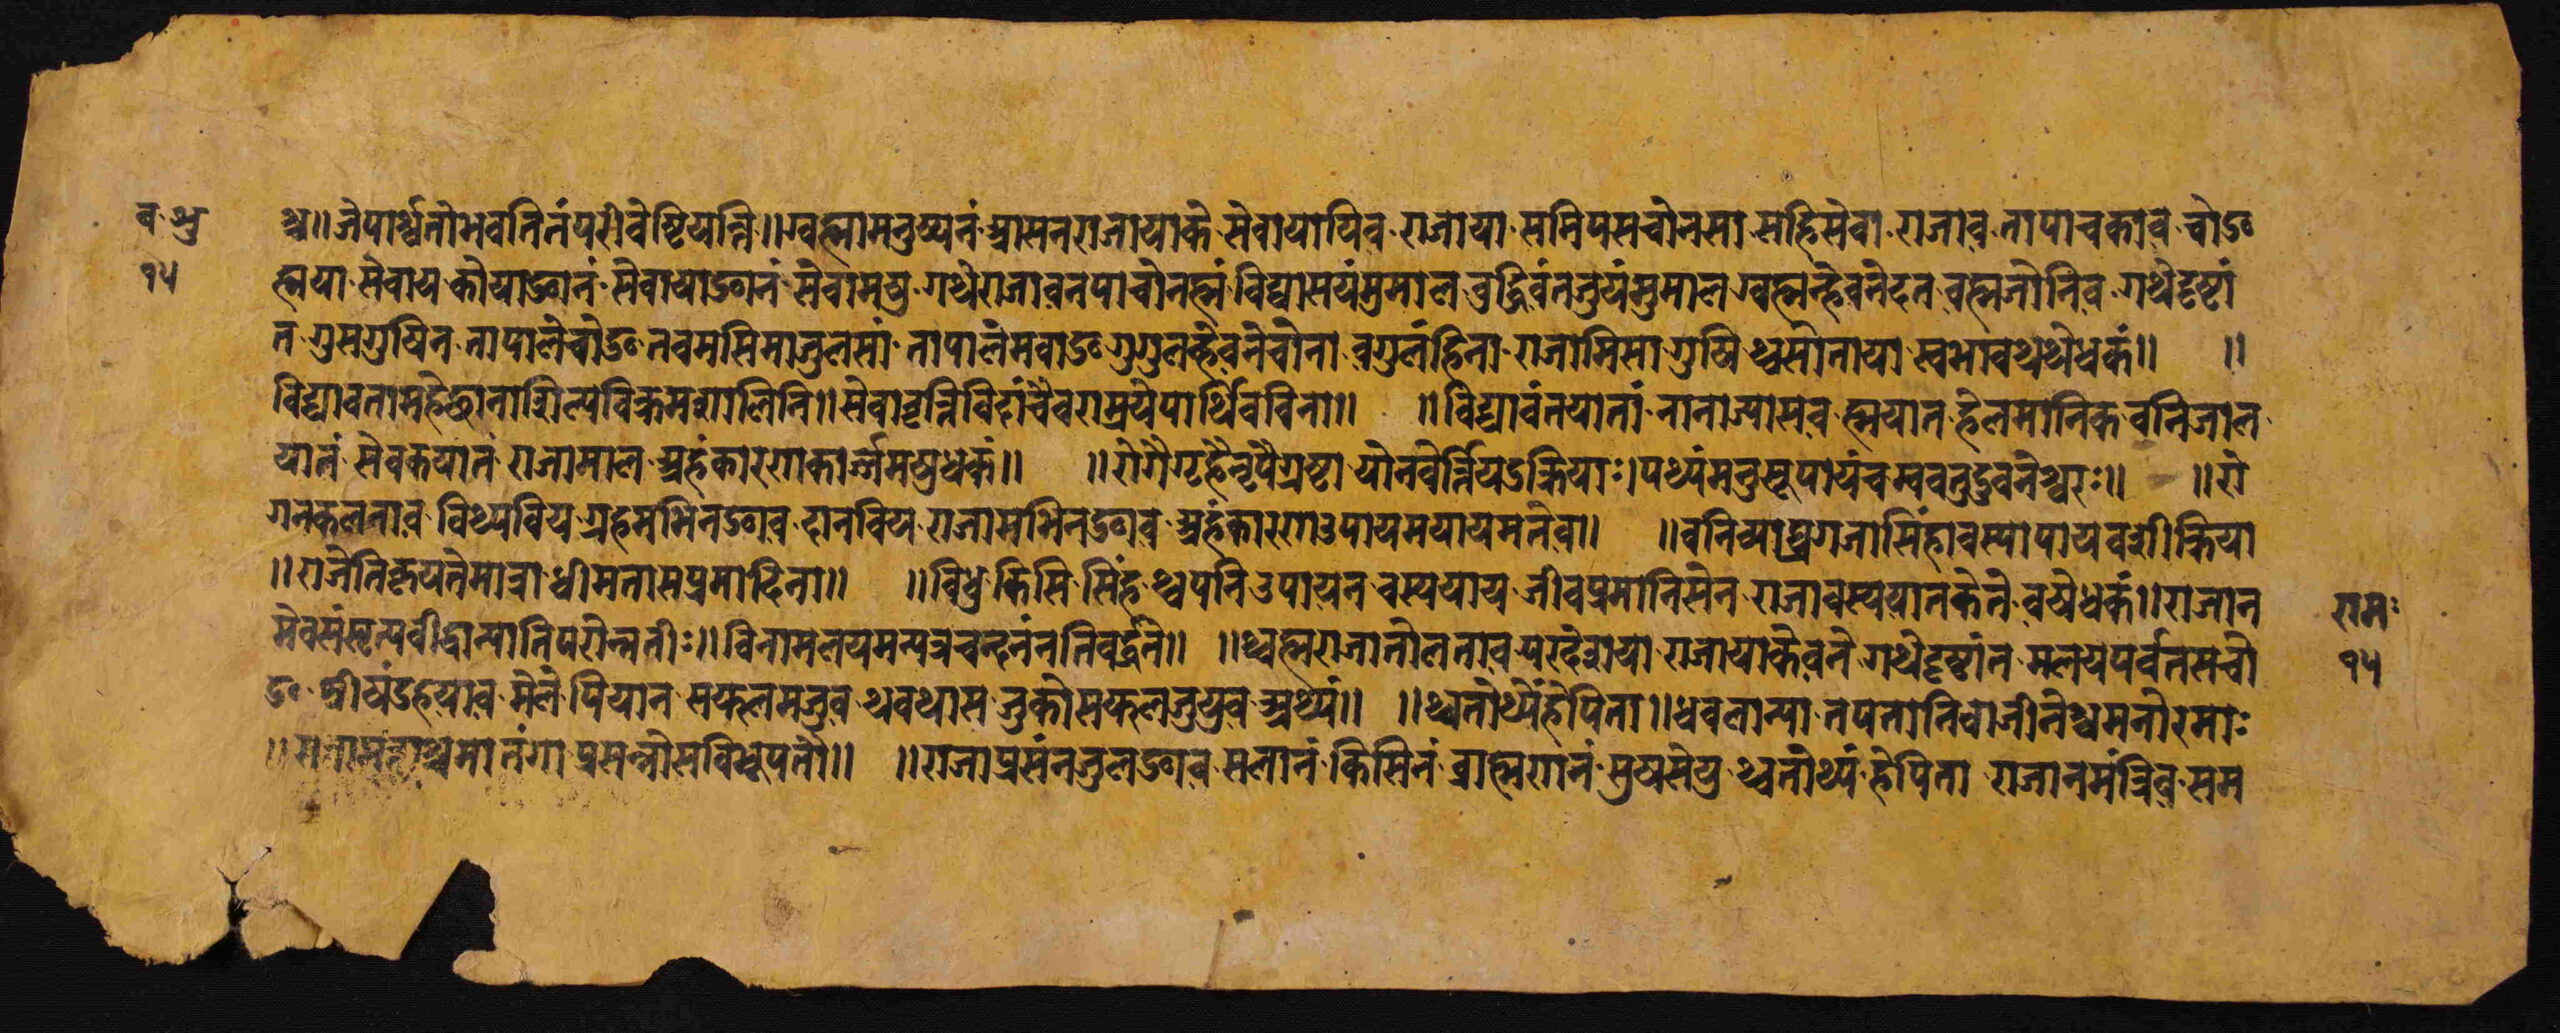 श्च॥ जेपार्श्वतोभवतितंपरीवेष्टियन्ति॥ ग्वह्मामनुष्यनं आसनराजायाके सेवायायिव राजाया समिपसचोनसा सहिसेवा राजाव नापाचकाव चोङ
ह्मया सेवाय कोयाङानं सेवायाङानं सेवामयु गथेराजावनपाचोनह्मं विद्यासयंमुमाल वुद्धिवंतजुयंमुमाल ग्वह्मन्हेवनेदत वह्मजोनिव गथेदृष्टां
त गुसगुषिन नापालेचोङ तवमसिमाजुलसां नापालंमवाङ गुगुलन्हेवनेचोना वगुलंहिना राजामिसा गुषि थ्वसोताया स्वभावथथेधकं॥ ॥
विद्यावतामहेछानाशिल्पविक्रमशालिनि॥ सेवावृत्तिविदांचैवराश्रयेपार्थिवविना॥ ॥विद्यावंतयातां नानाज्यासव ह्मयात हेलमानिक वनिजाल
यातं सेवकयातं राजामाल अहंकारगाकार्ज्जमयुधकं॥ ॥रोगैगृहैनृपैग्रष्टा योनवेर्त्तियऽक्रियाः। पथ्यंमनुसूपायंचम्ववतुदुवनेश्वरः॥ ॥रो
गनकलनाव विथ्यविय ग्रहमभिनङाव दानविय राजामभिनङाव अहंकारगाउपायमयायमतेवा॥ ॥वनिव्याघ्रगजासिंहावस्यापायवशीक्रिया
॥राजेतिकृयतेमात्राधीमतासप्रमादिना॥ ॥विधु किसि सिंह थ्वपनि उपायन वस्ययाय जीवप्रमानिसेन राजावस्ययानकेते वयेधकं॥ राजान
मेवसंसृत्यवीद्वान्यातिपरोन्नतीः॥ विनामलयमन्यत्रचन्दनंनतिवर्द्धते॥ ॥थ्वह्मराजानोलनाव परदेशया राजायाकेवने गथेदृष्टांत मलयपर्वतसचो
ङ श्रीषंडहयाव मेले पियान सफलमजुव थवथास जुकोसफलजुयुव अर्थ्यं॥ ॥थ्वतोर्थ्येहेपिता॥ धवलान्या तपतानिवाजीनेश्चमनोरमाः
॥ प्रसन्नोसविभूपतौ॥ ॥राजाप्रसंनजुलङाव सलानं किसिनं व्राह्मगानं सुयसेयु थ्वतोर्थ्यं हेपिता राजानमंत्रिव सम
व श्रु
१५
रामः
१५